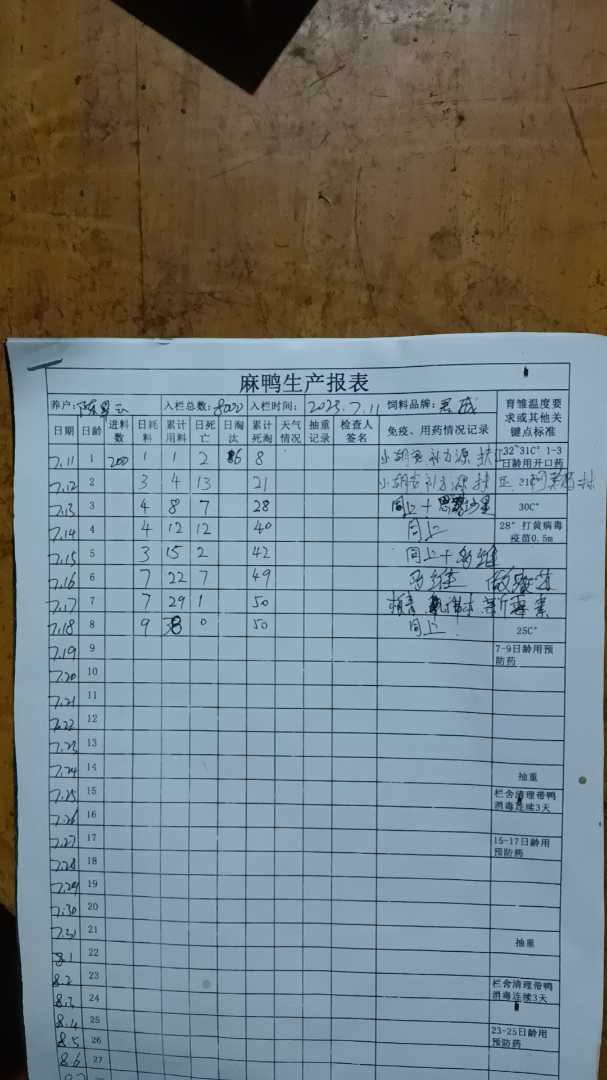 麻鸭生产报表
养户: 入栏总数:8000 入栏时间: 2025.7.11 饲料品牌: 育雏温度要求或其他关键点标准
日期 日龄 进料数 日耗料 累计用料 日死亡 日淘汰 累计死淘 天气情况 抽重记录 检查人签名 免疫、用药情况记录
7.11 1 200 1 1 2 6 8 32~31C° 1-3日龄用开口药
7.12 2 3 4 13 21
7.13 3 4 8 7 28 同上+ 30C°
7.14 4 4 12 12 40 同上 28° 打黄病毒疫苗0.5m
7.15 5 3 15 2 42 同上+多维
7.16 6 7 22 7 49 多维
7.17 7 7 29 1 50
7.18 8 9 38 0 50 同上 25C°
7.19 9 7-9日龄用预防药
7.20 10
7.21 11
7.22 12
7.23 13
7.24 14 抽重
7.25 15 栏舍清理带鸭消毒连续3天
7.26 16
7.27 17 15-17日龄用预防药
7.28 18
7.29 19
7.30 20
7.31 21 抽重
8.1 22
8.2 23 栏舍清理带鸭消毒连续3天
8.3 24
8.4 25 23-25日龄用预防药
8.5 26
8.6 27